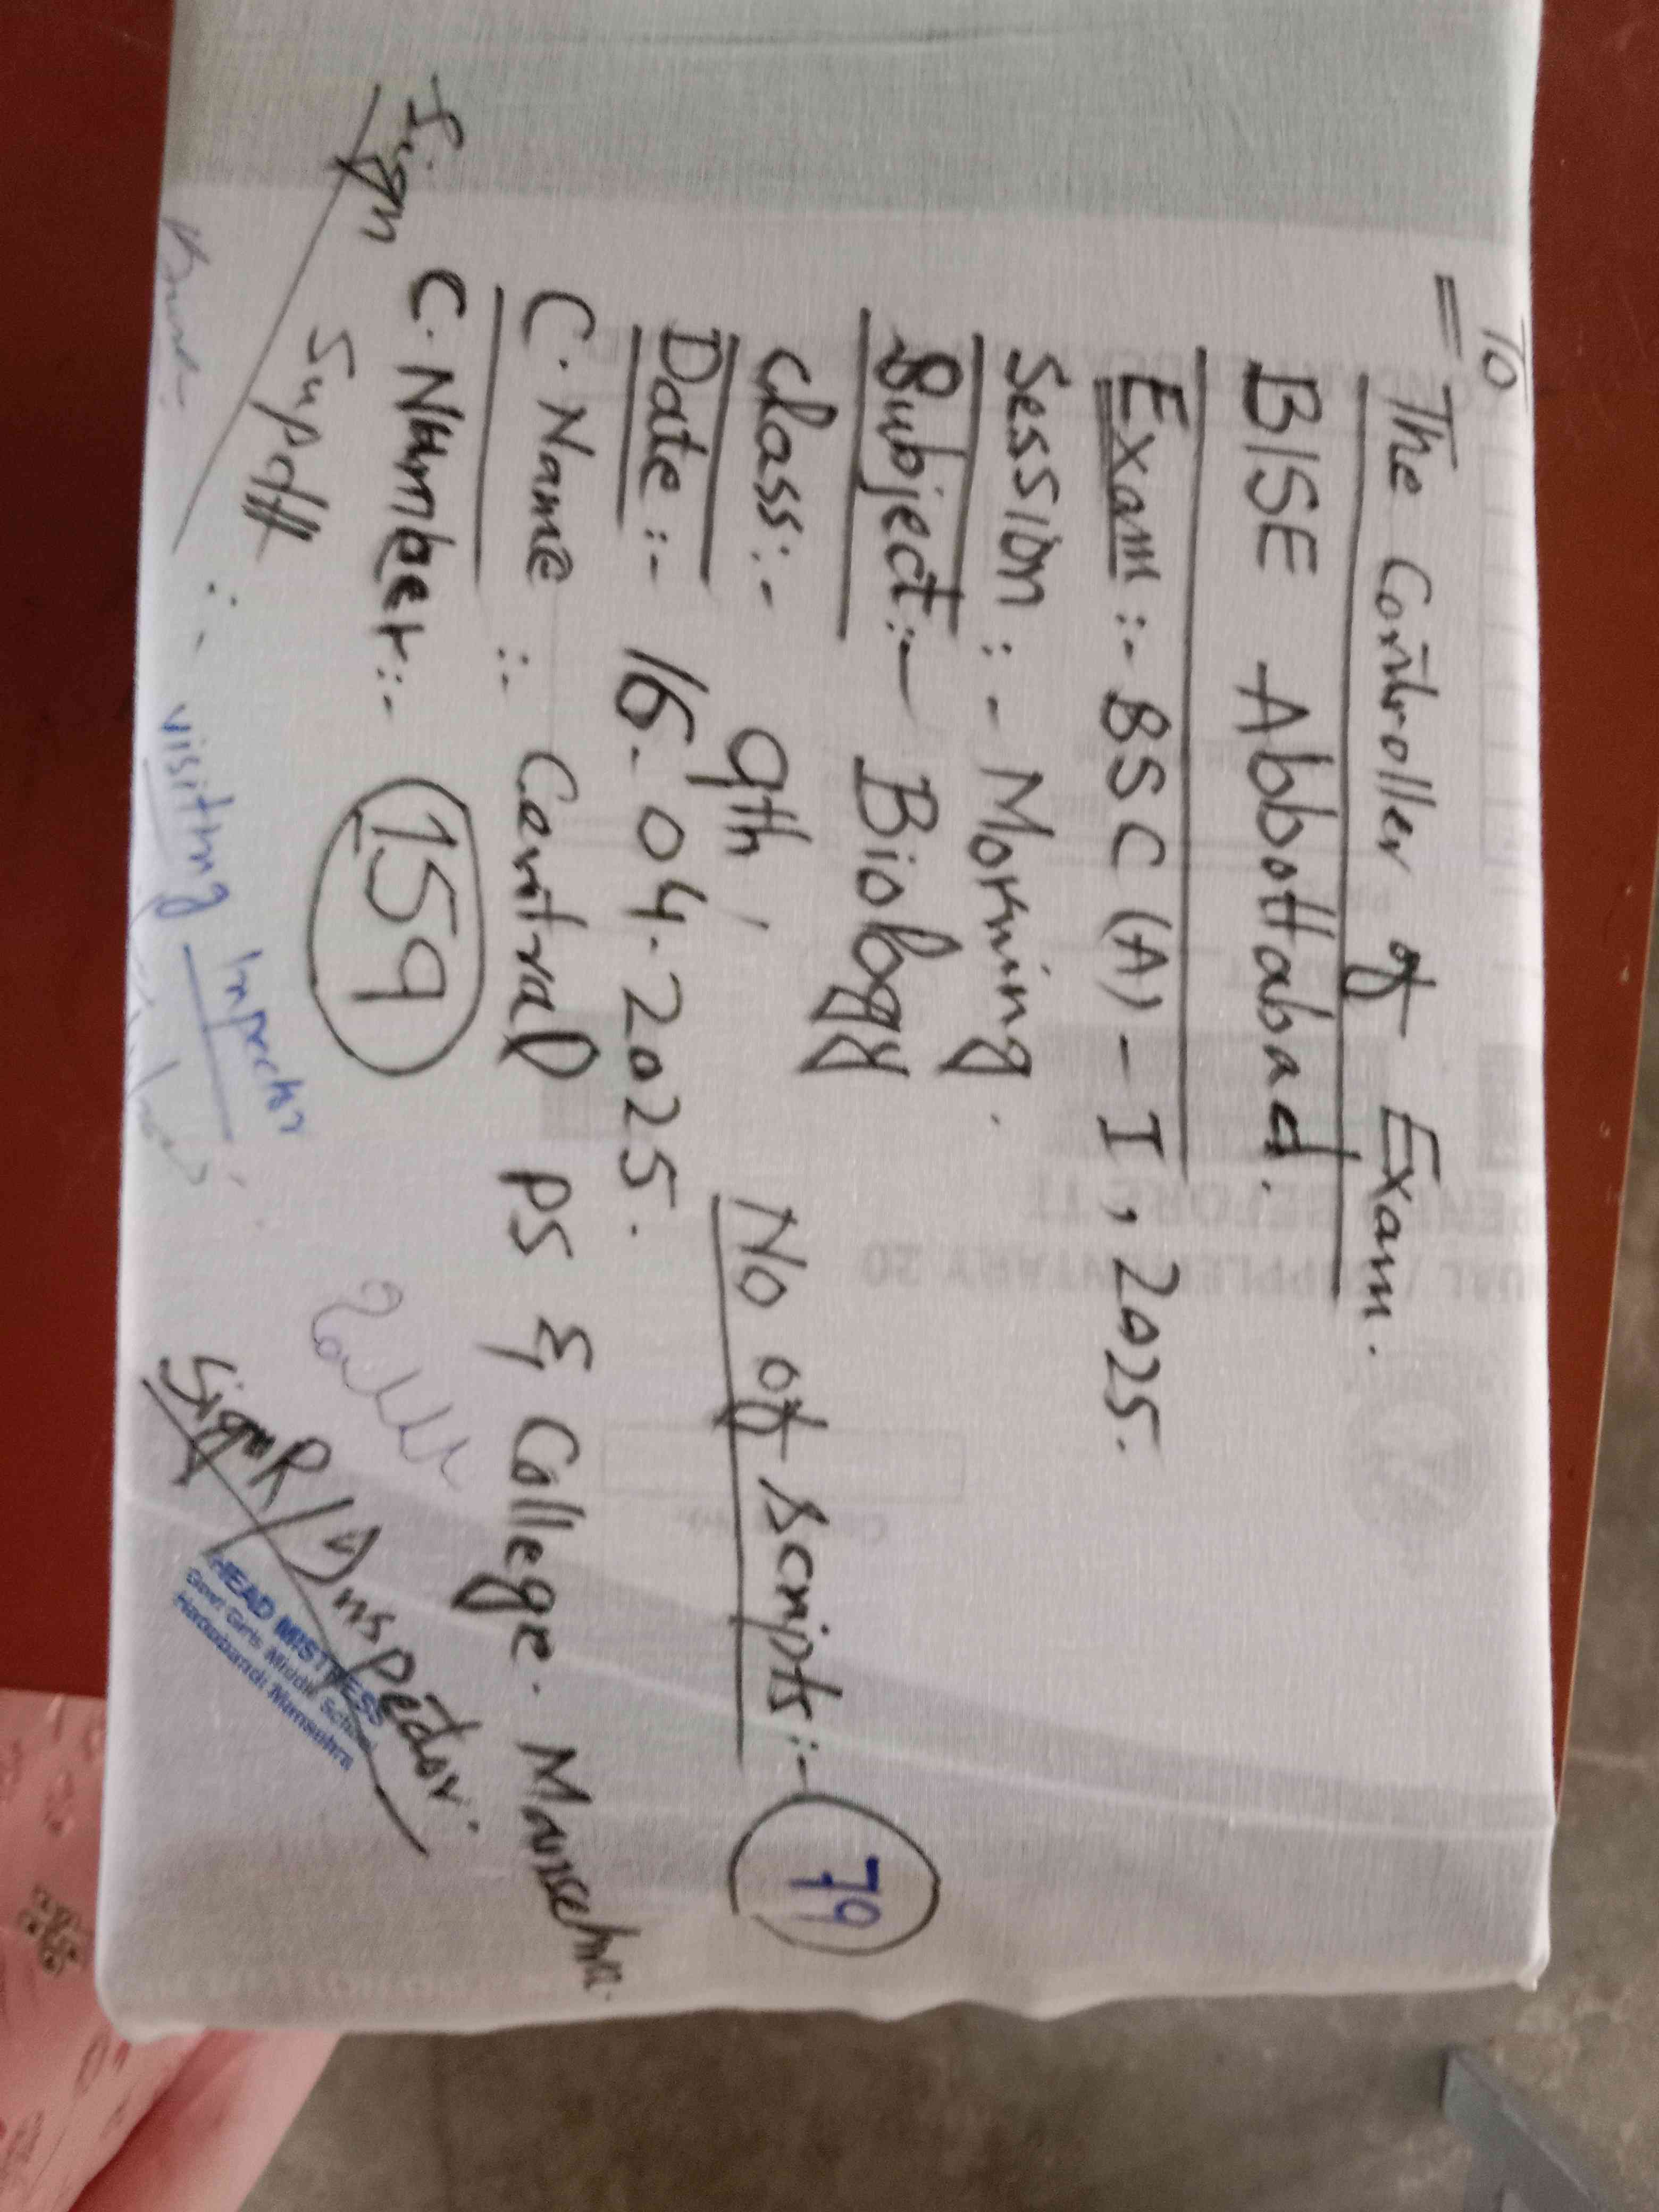 To
= The Controller of Exam.
BISE Abbottabad.
Exam :- BSC (A) - I, 2025.
Session :- Morning.
Subject :- Biology
Class :- 9th
No of Scripts :- 79
Date :- 16.04.2025.
C.Name :- Central PS & College. Mansehra.
C.Number :- 159
Sign Supdtt
:- visiting Inpector
Sign R/Inspector
HEAD MISTRESS
Govt Girls Middle School
Mansehra